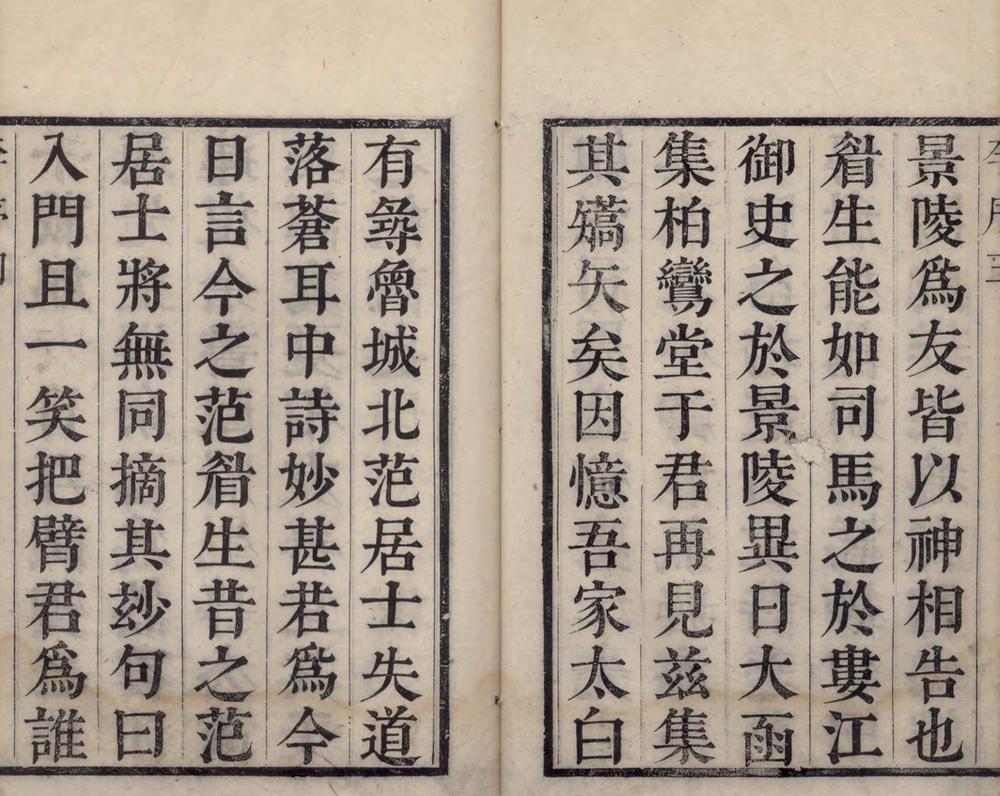 景陵爲友皆以神相告也
眢生能如司馬之於婁江
御史之於景陵異日大函
集柏鸞堂于君再見茲集
其嚆矢矣因憶吾家太白
有尋魯城北范居士失道
落蒼耳中詩妙甚若爲今
日言今之范眢生昔之范
居士將無同摘其玅句曰
入門且一笑把臂君爲誰